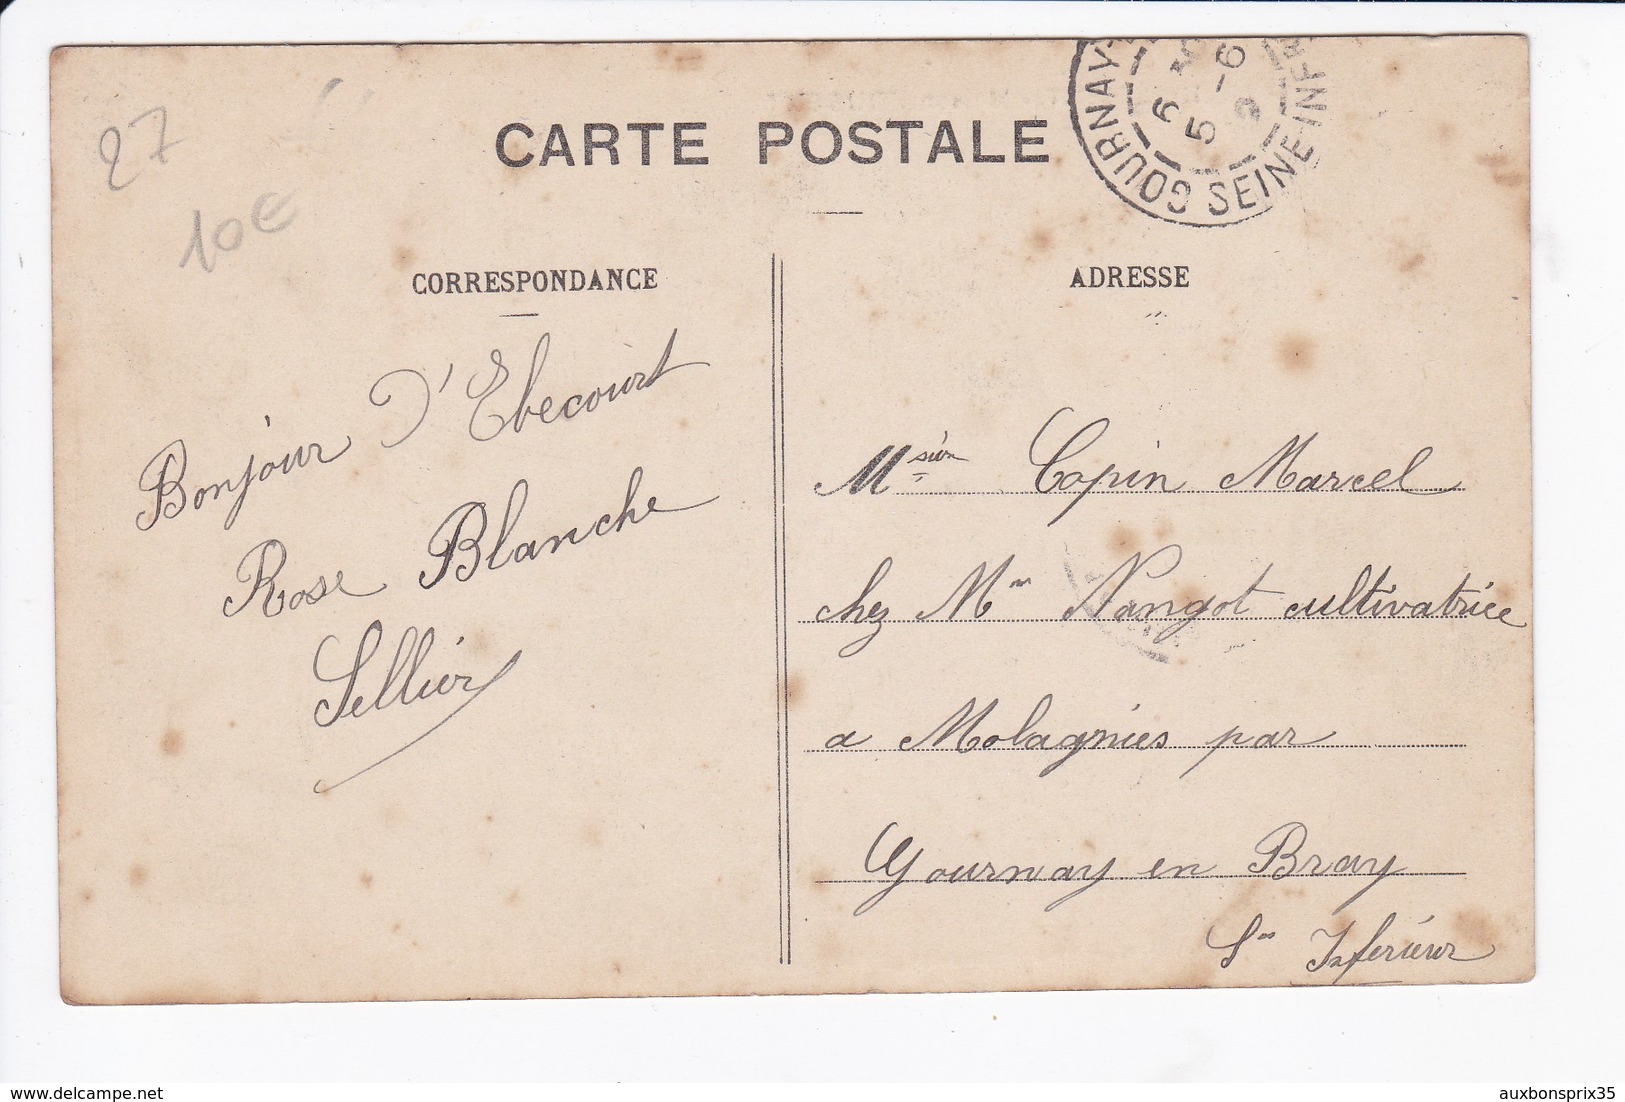 27
10€
CARTE POSTALE
GOURNAY
SEINE INFRE
5 -6
CORRESPONDANCE
Bonjour D'Ebecourt
Rose Blanche
Sellier
ADRESSE
Msieur Copin Marcel
chez Mme Nangot cultivatrice
a Molagnies par
Gournay en Bray
Sne Inférieur
delcampe.net
auxbonsprix35